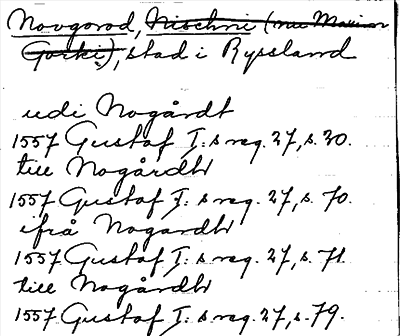 Novgorod, Nischni (nu Maxim
Gorki), stad i Ryssland
udi Nogårdt
1557 Gustaf I:s reg. 27, s. 20.
till Nogårdh
1557 Gustaf I:s reg. 27, s. 70.
ifrå Nogardh
1557 Gustaf I:s reg. 27, s. 71.
till Nogårdh
1557 Gustaf I:s reg. 27, s. 79.